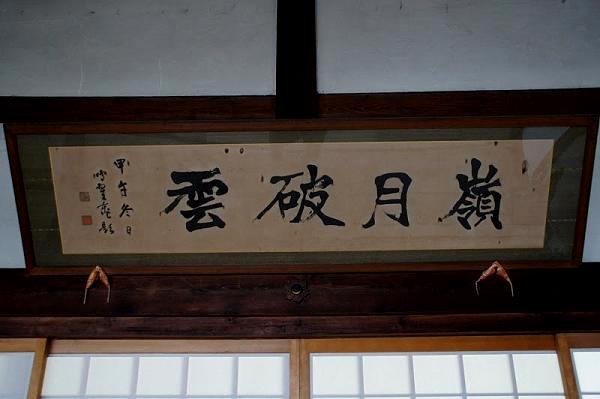 嶺月破雲
甲午冬日